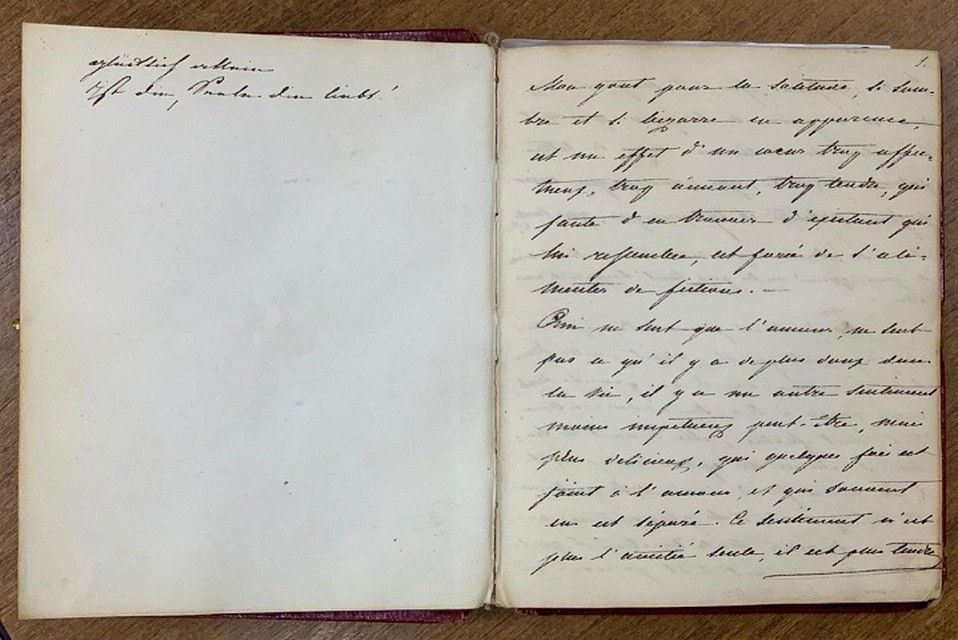 glücklich allein
Ist die, Seele die liebt!
1.
Mon gout pour la solitude, si som-
bre et si bizarre en apparence,
est un effet d'un coeur trop affec-
tueux, trop aimant, trop tendre, qui
faute d'en trouver d'existant qui
lui ressemblen, est forcé de l'ali-
menter de fictions. —
Qui ne sent que l'amour, ne sent
pas ce qu'il y a de plus doux dans
la vie, il y a un autre sentiment
moins impetueux peut-être, mais
plus delicieux, qui quelques fois est
joint à l'amour, et qui souvent
en est séparé. Ce sentiment n'est
plus l'amitié seule, il est plus tendre